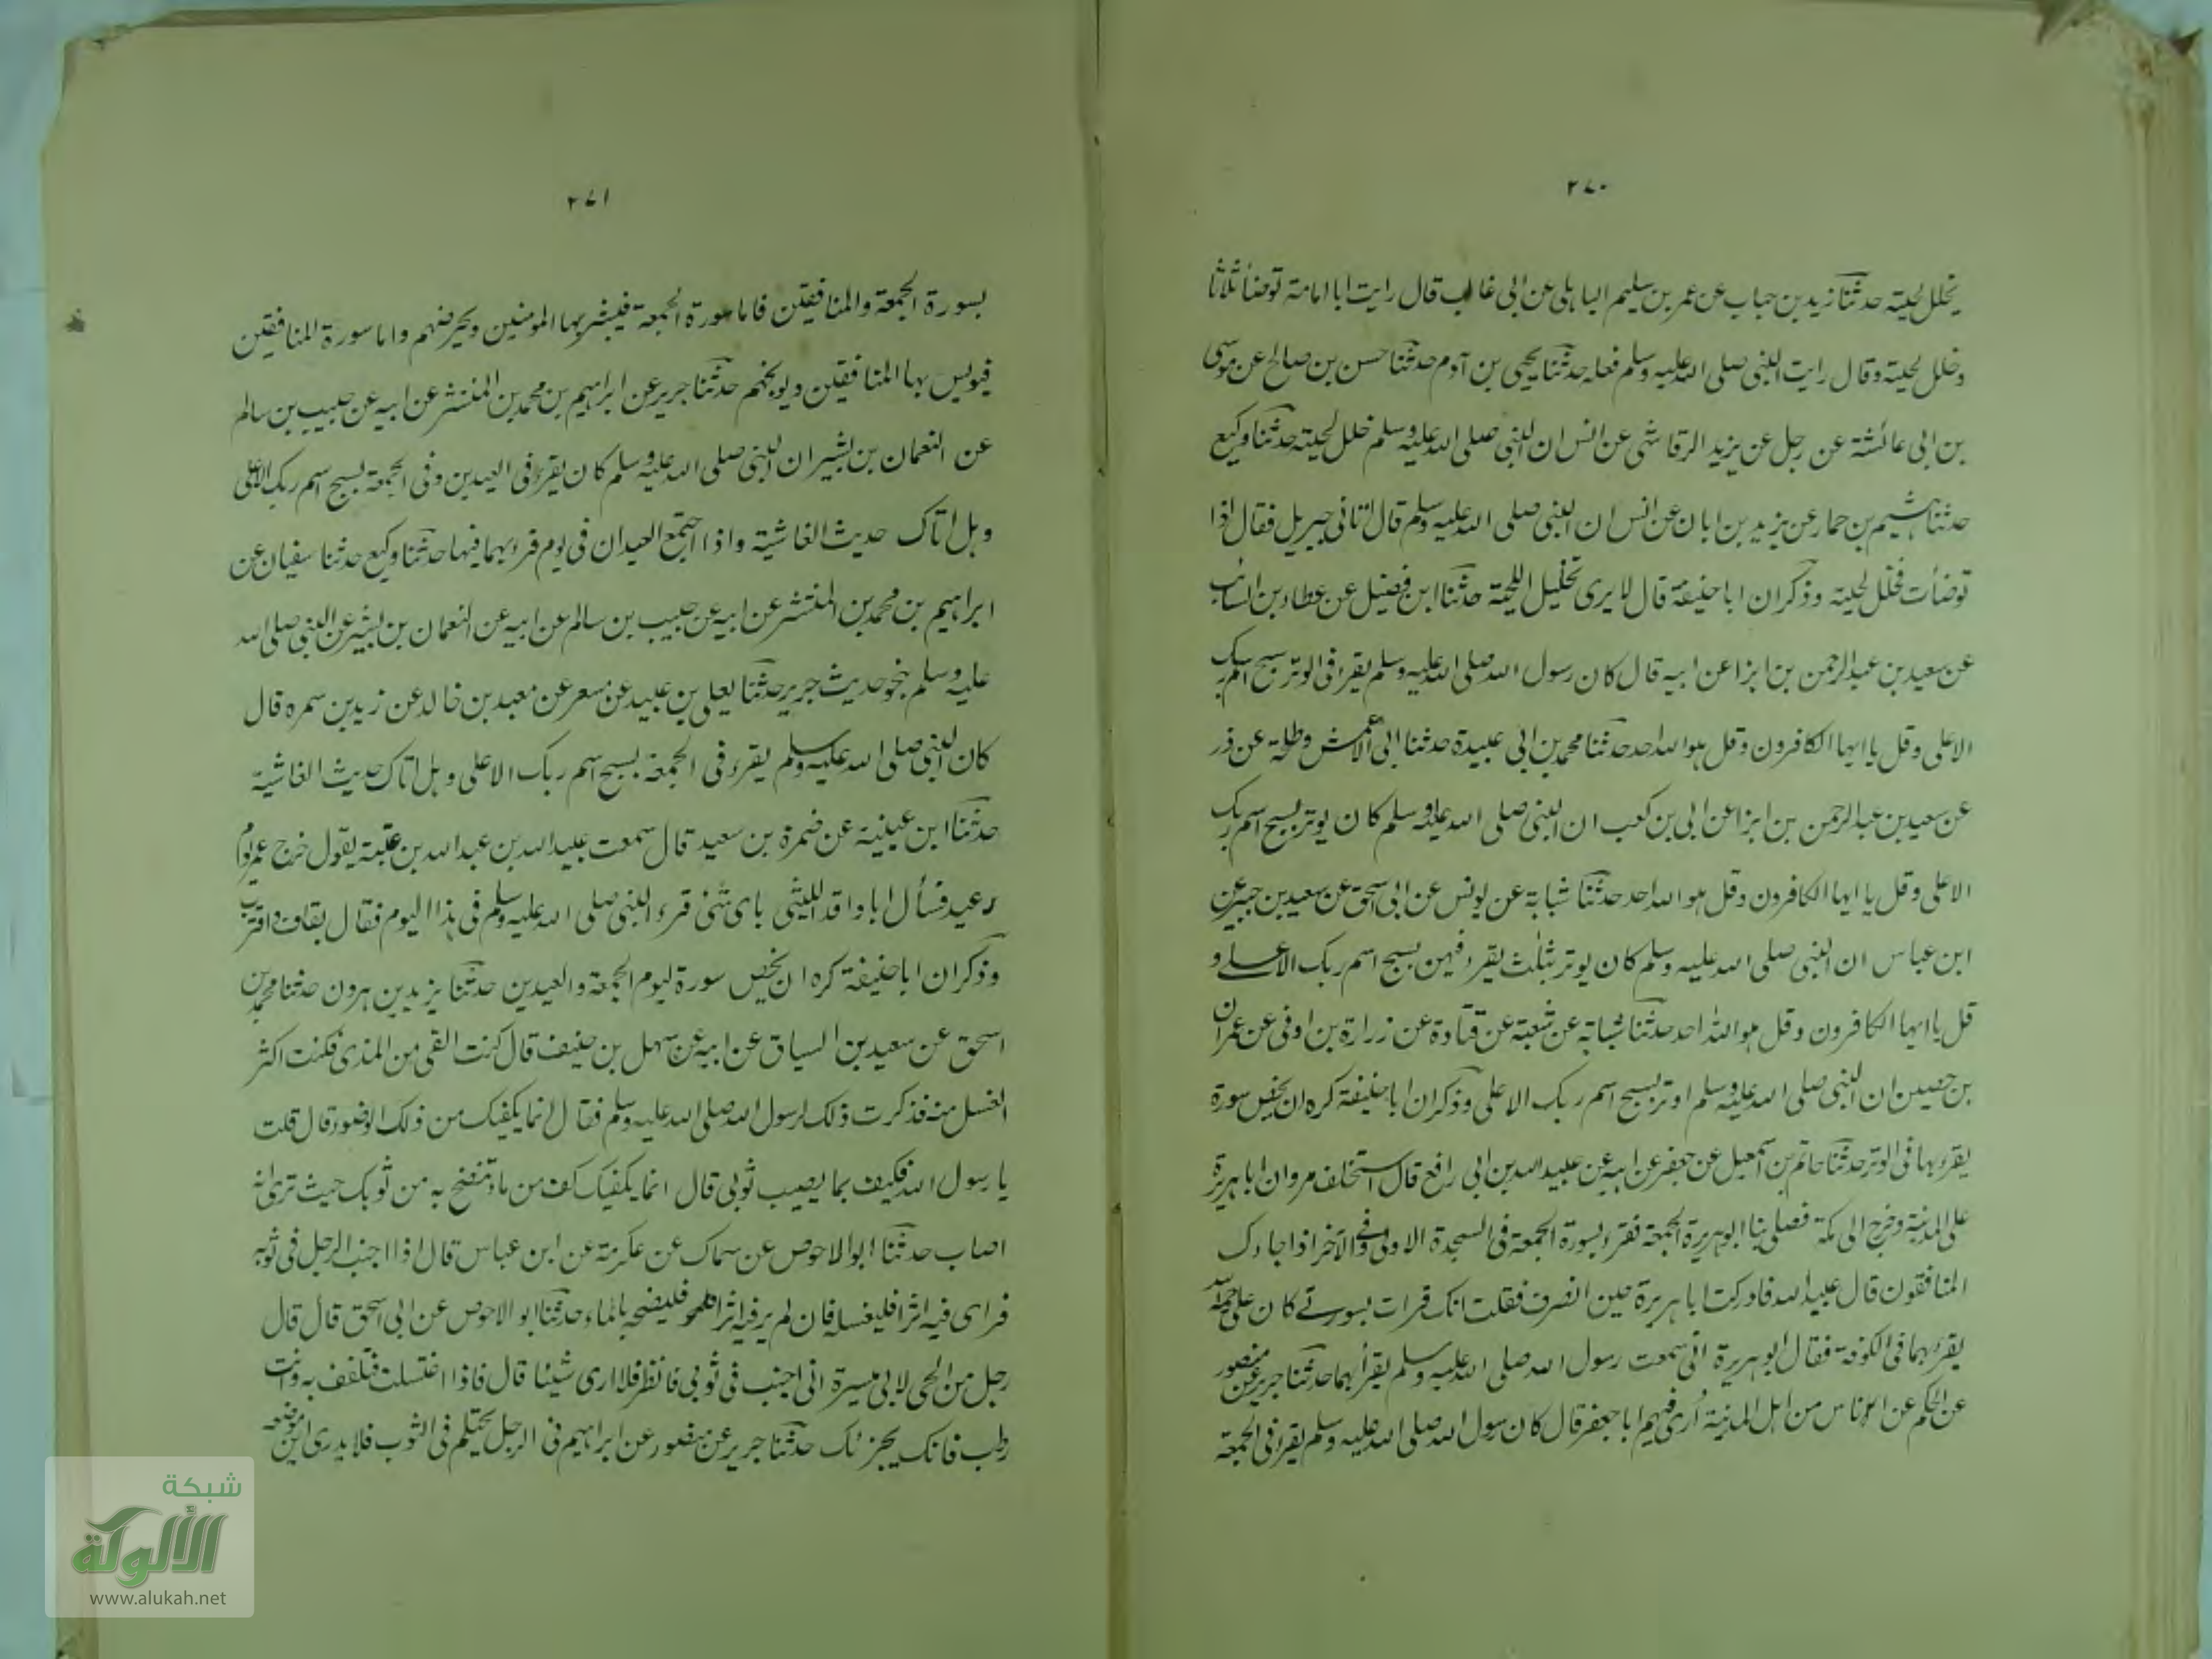 ٢٧٠
يخلل لحيته حدثنا زيد بن حباب عن عمر بن سليم الباهلي عن ابي غالب قال رايت ابا امامة توضأ ثلاثا
وخلل لحيته وقال رايت النبي صلى الله عليه وسلم فعله حدثنا يحيى بن آدم حدثنا حسن بن صالح عن موسى
بن ابي عائشة عن رجل عن يزيد الرقاشي عن انس ان النبي صلى الله عليه وسلم خلل لحيته حدثنا وكيع
حدثنا هشيم بن حمار عن يزيد بن ابان عن انس ان النبي صلى الله عليه وسلم قال اتاني جبريل فقال اذا
توضأت فخلل لحيته وذكر ان ابا حنيفة قال لا يرى تخليل اللحية حدثنا ابن فضيل عن عطاء بن السائب
عن سعيد بن عبد الرحمن بن ابزا عن ابيه قال كان رسول الله صلى الله عليه وسلم يقرا في الوتر بسبح اسم ربك
الاعلى وقل يا ايها الكافرون وقل هو الله احد حدثنا محمد بن ابي عبيدة حدثنا ابي الاعمش وطلحة عن ذر
عن سعيد بن عبد الرحمن بن ابزا عن ابي بن كعب ان النبي صلى الله عليه وسلم كان يوتر بسبح اسم ربك
الاعلى وقل يا ايها الكافرون وقل هو الله احد حدثنا شبابة عن يونس عن ابي اسحق عن سعيد بن جبير عن
ابن عباس ان النبي صلى الله عليه وسلم كان يوتر بثلث يقرء فيهن بسبح اسم ربك الاعلى و
قل يا ايها الكافرون وقل هو الله احد حدثنا شبابة عن شعبة عن قتادة عن زرارة بن اوفى عن عمران
بن حصين ان النبي صلى الله عليه وسلم اوتر بسبح اسم ربك الاعلى وذكر ان ابا حنيفة كره ان يخص سورة
يقرء بها في الوتر حدثنا حاتم بن اسمعيل عن جعفر عن ابيه عن عبيد الله بن ابي رافع قال استخلف مروان ابا هريرة
على المدينة وخرج الى مكة فصلى بنا ابو هريرة الجمعة فقرء بسورة الجمعة في السجدة الاولى وفي الآخر اذا جاءك
المنافقون قال عبيد الله فادركت ابا هريرة حين انصرف فقلت انك قرات بسورتے كان علي رحمه الله
يقرء بهما في الكوفة فقال ابو هريرة اني سمعت رسول الله صلى الله عليه وسلم يقرأ بهما حدثنا جرير عن منصور
عن الحكم عن اناس من اهل المدينة أرى فيهم ابا جعفر قال كان رسول الله صلى الله عليه وسلم يقرء في الجمعة
٢٧١
بسورة الجمعة والمنافقين فاما سورة الجمعة فيبشر بها المومنين ويحرضهم واما سورة المنافقين
فيويس بها المنافقين ويوبخهم حدثنا جرير عن ابراهيم بن محمد بن المنتشر عن ابيه عن حبيب بن سالم
عن النعمان بن بشير ان النبي صلى الله عليه وسلم كان يقرء في العيدين وفي الجمعة بسبح اسم ربك الاعلى
وهل اتاك حديث الغاشية واذا اجتمع العيدان في يوم قرء بهما فيها حدثنا وكيع حدثنا سفيان عن
ابراهيم بن محمد بن المنتشر عن ابيه عن حبيب بن سالم عن ابيه عن النعمان بن بشير عن النبي صلى الله
عليه وسلم بنحو حديث جرير حدثنا يعلى بن عبيد عن مسعر عن معبد بن خالد عن زيد بن سمره قال
كان النبي صلى الله عليه وسلم يقرء في الجمعة بسبح اسم ربك الاعلى وهل اتاك حديث الغاشية
حدثنا ابن عيينة عن ضمرة بن سعيد قال سمعت عبيد الله بن عبد الله بن عتبة يقول خرج عمر يوم
عيد فسأل ابا واقد الليثي باى شئ قرء النبي صلى الله عليه وسلم في هذا اليوم فقال بقاف واقتربت
وذكر ان ابا حنيفة كره ان يخص سورة ليوم الجمعة والعيدين حدثنا يزيد بن هرون حدثنا محمد بن
اسحق عن سعيد بن السباق عن ابيه عن سهل بن حنيف قال كنت القى من المذى فكنت اكثر
الغسل منه فذكرت ذلك لرسول الله صلى الله عليه وسلم فقال انما يكفيك من ذلك الوضوء قال قلت
يا رسول الله فكيف بما يصيب ثوبي قال انما يكفيك كف من ماء تنضح به من ثوبك حيث ترى انه
اصاب حدثنا ابو الاحوص عن سماك عن عكرمة عن ابن عباس قال اذا اجنب الرجل في ثوبه
فراى فيه اثرا فليغسله فان لم ير فيه اثرا فلينضحه بالماء حدثنا ابو الاحوص عن ابي اسحق قال قال
رجل من الحى لابي ميسرة انى اجنب في ثوبي فانظر فلا ارى شيئا قال فاذا اغتسلت فتلفف به وانت
رطب فانك يجزئك حدثنا جرير عن منصور عن ابراهيم في الرجل يحتلم في الثوب فلا يدرى اين موضعه
شبكة
الألوكة
www.alukah.net